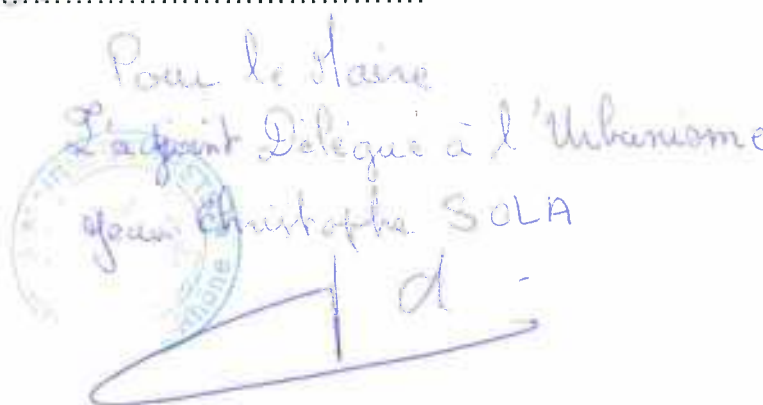 Pour le Maire
L'adjoint Délégué à l'Urbanisme
Jean Christophe SOLA